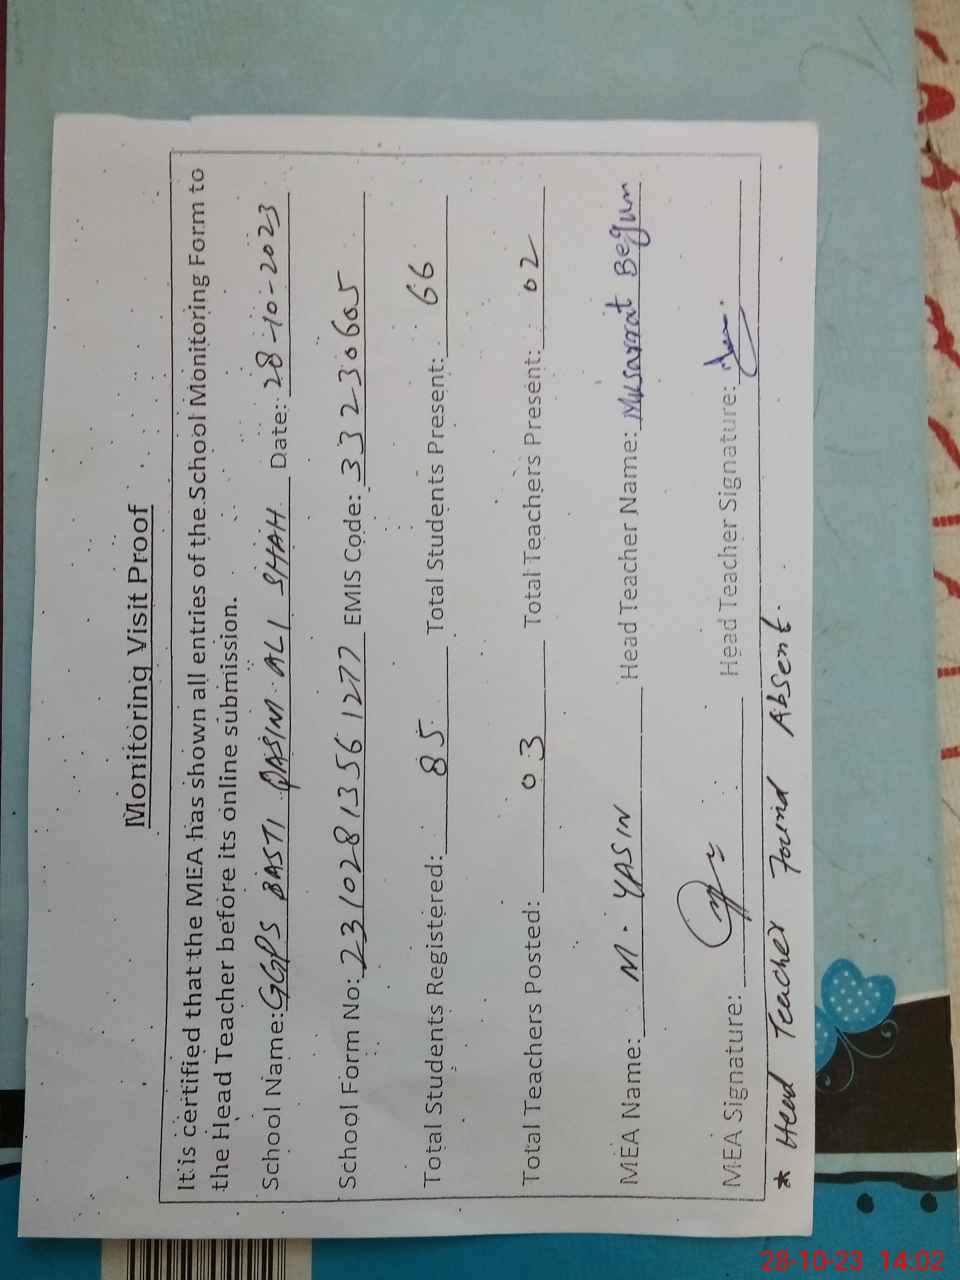 Monitoring Visit Proof
It is certified that the MEA has shown all entries of the School Monitoring Form to
the Head Teacher before its online submission.
School Name: GGPS BASTI QASIM ALI SHAH Date: 28-10-2023
School Form No: 23102813561277 EMIS Code: 33230605
Total Students Registered: 85 Total Students Present: 66
Total Teachers Posted: 03 Total Teachers Present: 02
MEA Name: M. YASIN Head Teacher Name: Musarrat Begum
MEA Signature: Head Teacher Signature:
* Head Teacher Found Absent.
28-10-23 14:02